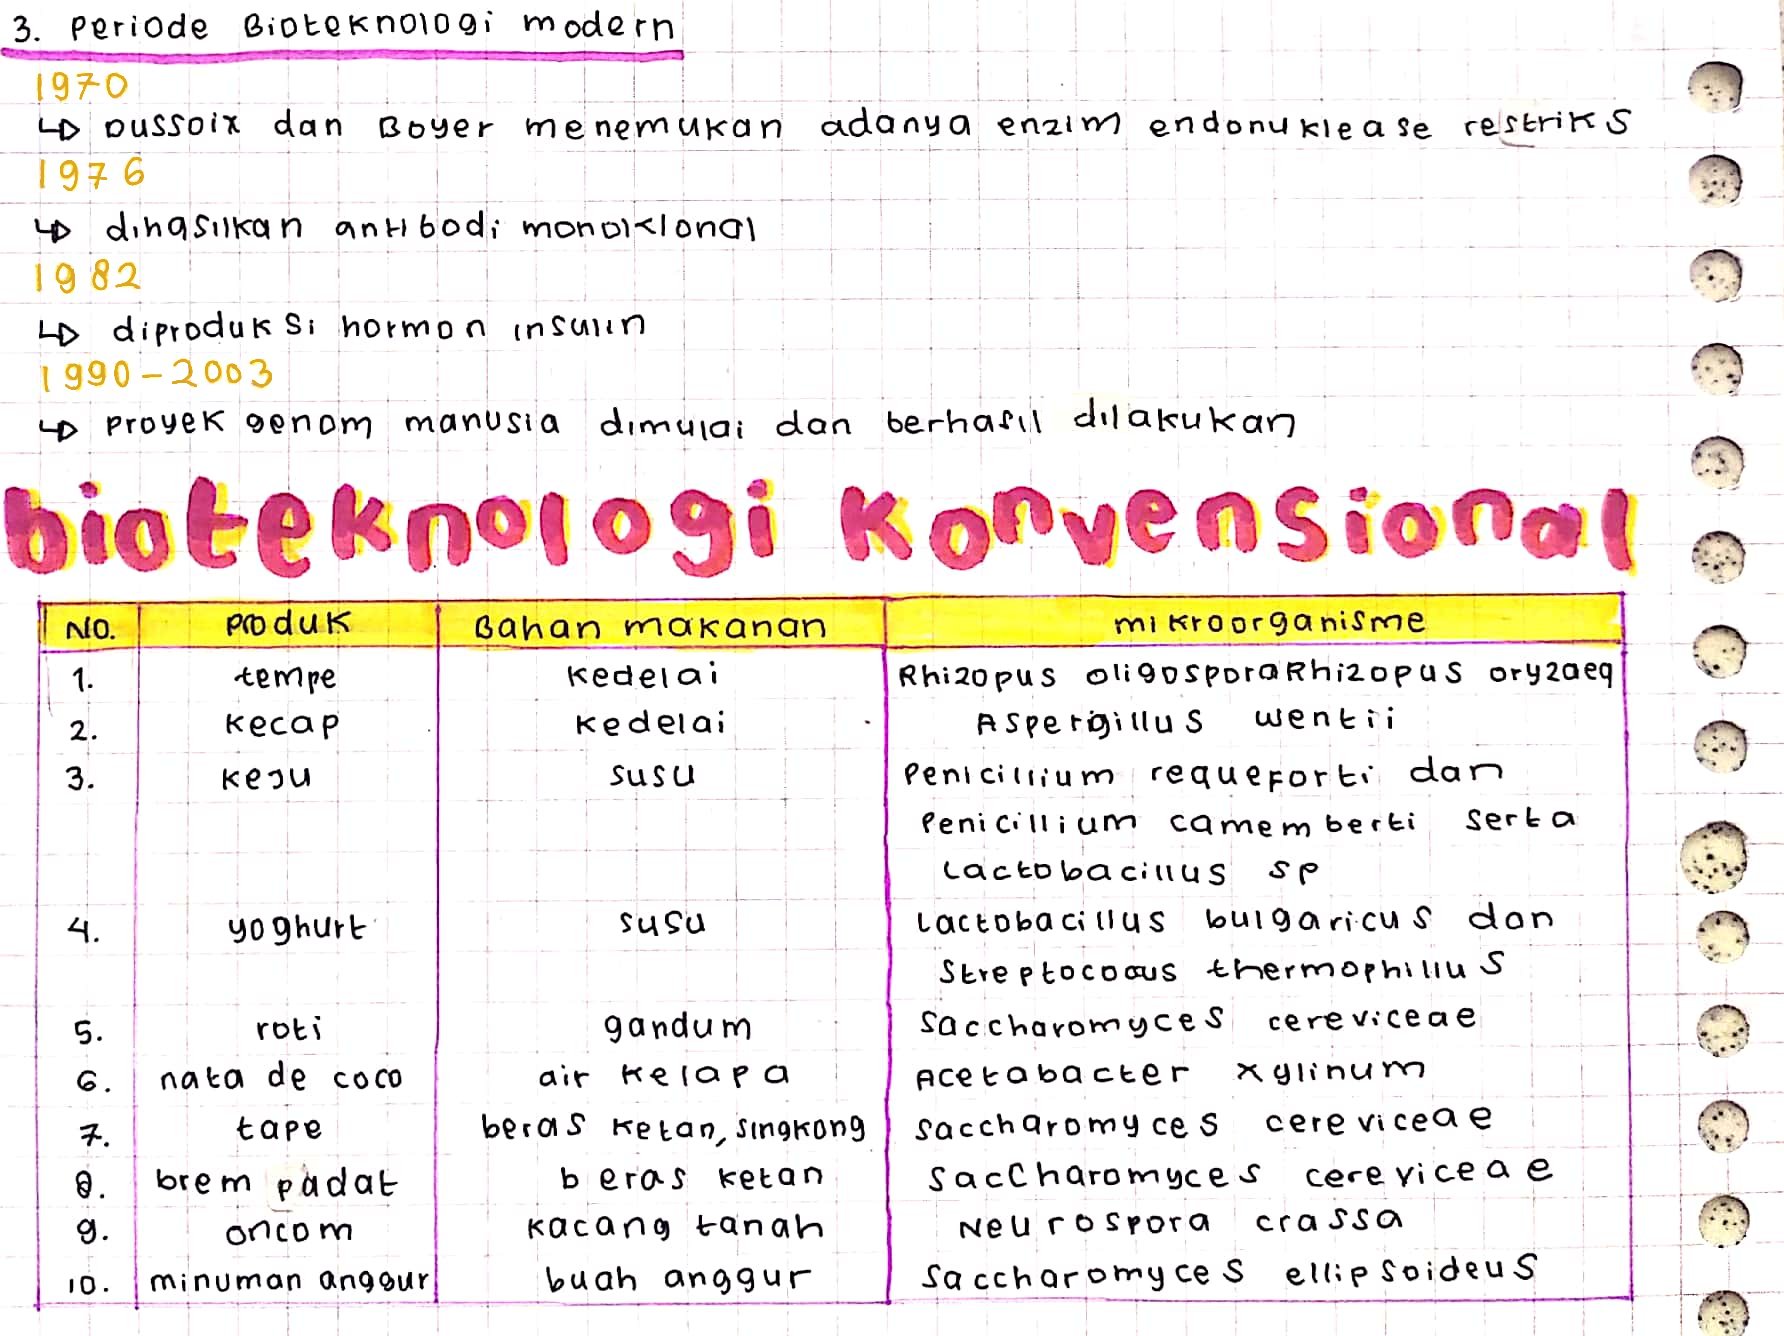 3. Periode Bioteknologi modern
1970
↳ Dussoix dan Boyer menemukan adanya enzim endonuklease restriks
1976
↳ dihasilkan antibodi monoklonal
1982
↳ diproduksi hormon insulin
1990-2003
↳ proyek genom manusia dimulai dan berhasil dilakukan
bioteknologi konvensional
No. Produk Bahan makanan mikroorganisme
1. tempe kedelai Rhizopus oligosporaRhizopus oryzaeq
2. kecap kedelai Aspergillus wentii
3. keju susu Penicillium requeforti dan
Penicillium camemberti serta
Lactobacillus sp
4. yoghurt susu Lactobacillus bulgaricus dan
Streptococcus thermophillus
5. roti gandum Saccharomyces cereviceae
6. nata de coco air kelapa Acetabacter xylinum
7. tape beras ketan, singkong Saccharomyces cereviceae
8. brem padat beras ketan Saccharomyces cereviceae
9. oncom kacang tanah Neurospora crassa
10. minuman anggur buah anggur Saccharomyces ellipsoideus